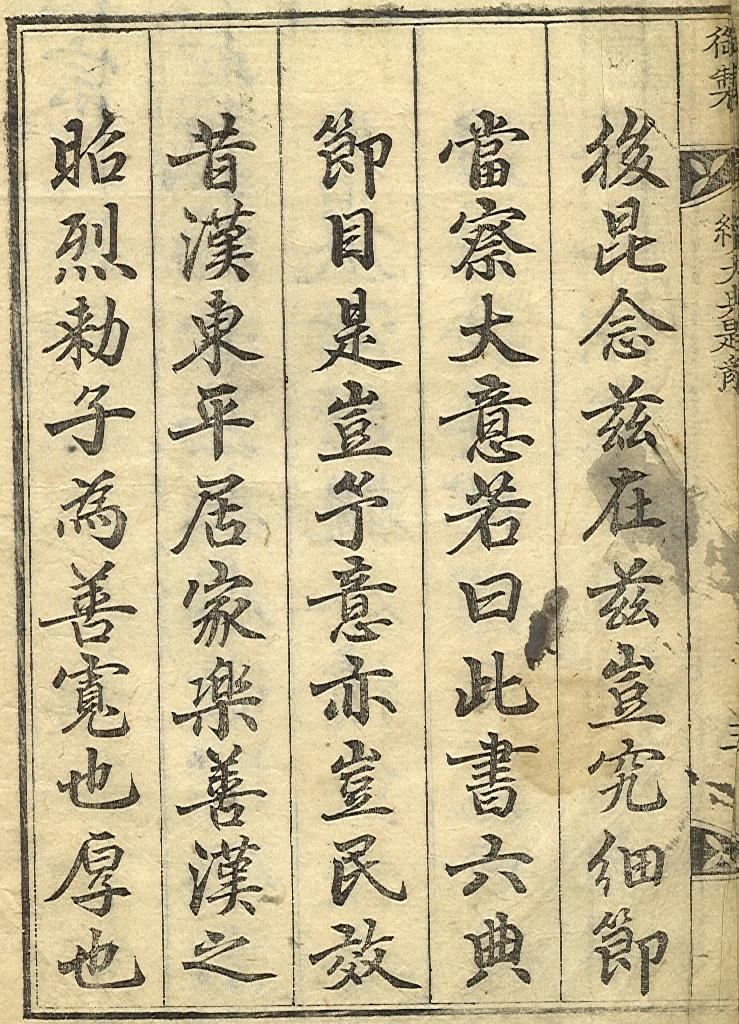 御製
後昆念茲在茲豈究細節
當察大意若曰此書六典
節目是豈予意亦豈民效
昔漢東平居家樂善漢之
昭烈勅子為善寬也厚也